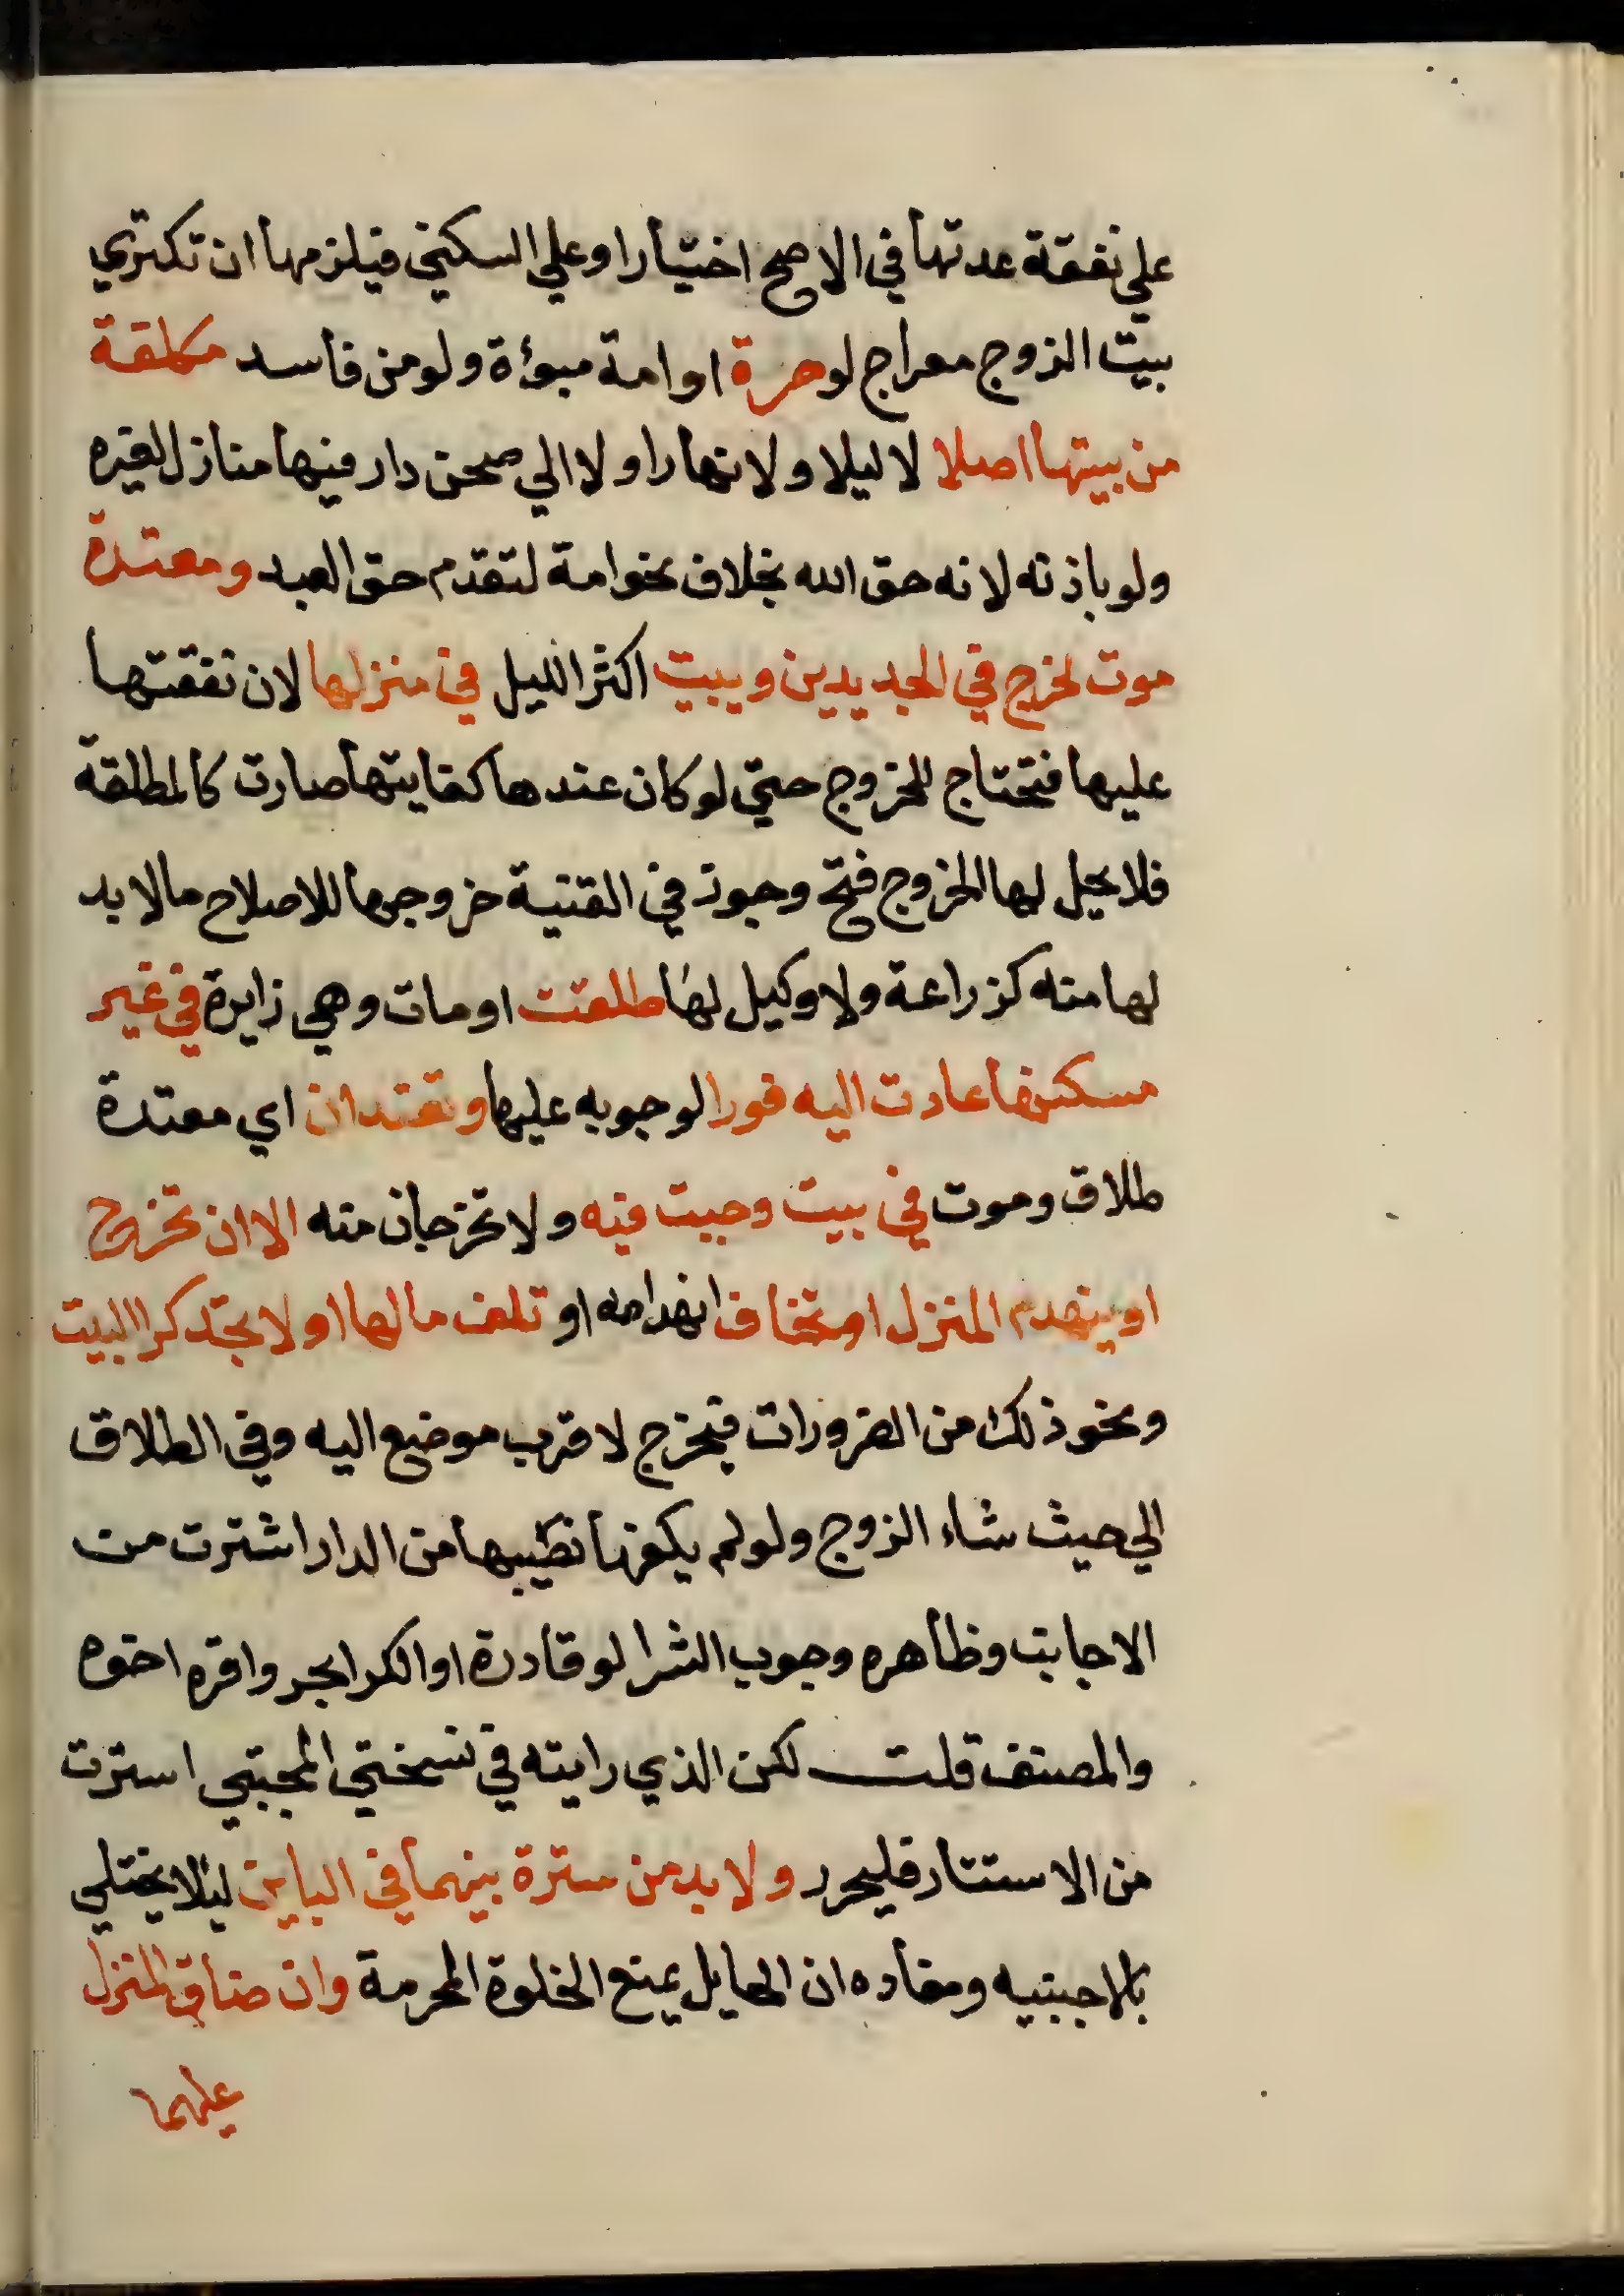 علي نفقة عدتها في الاصح اختيارا وعلي السكني فيلزمها ان تكتري
بيت الزوج معراج لو حرة او امة مبوءة ولو من فاسد مكلفة
من بيتها اصلا لا ليلا ولا نهارا ولا الي صحن دار فيها منازل لغيره
ولو باذنه لانه حق الله بخلاف نحو امة لتقدم حق العبد ومعتدة
موت تخرج في الجديدين ويبيت اكثر الليل في منزلها لان نفقتها
عليها فتحتاج للخروج حتي لو كان عندها كفايتها صارت كالمطلقة
فلا يحل لها الخروج فتح وجوز في القنية خروجها للاصلاح ما لا بد
لها منه كزراعة ولا وكيل لها طلقت او مات وهي زايرة في غير
مسكنها عادت اليه فورا لوجوبه عليها وتعتدان اي معتدة
طلاق وموت في بيت وجبت فيه ولا تخرجان منه الا ان تخرج
او ينهدم المنزل او تخاف انهدامه او تلف مالها او لا تجد كرا البيت
ونحو ذلك من الضرورات فتخرج لاقرب موضع اليه وفي الطلاق
الي حيث شاء الزوج ولو لم يكفها نصيبها من الدار اشترت من
الاجانب وظاهره وجوب الشرا لو قادرة او الكرا بحر واقره اخوه
والمصنف قلت لكن الذي رايته في نسختي المجتبي استرت
من الاستتار فليحرر ولا بد من سترة بينهما في الباين ليلا يختلي
بالاجنبيه ومفاده ان الحايل يمنع الخلوة المحرمة وان ضاق المنزل
عليهما